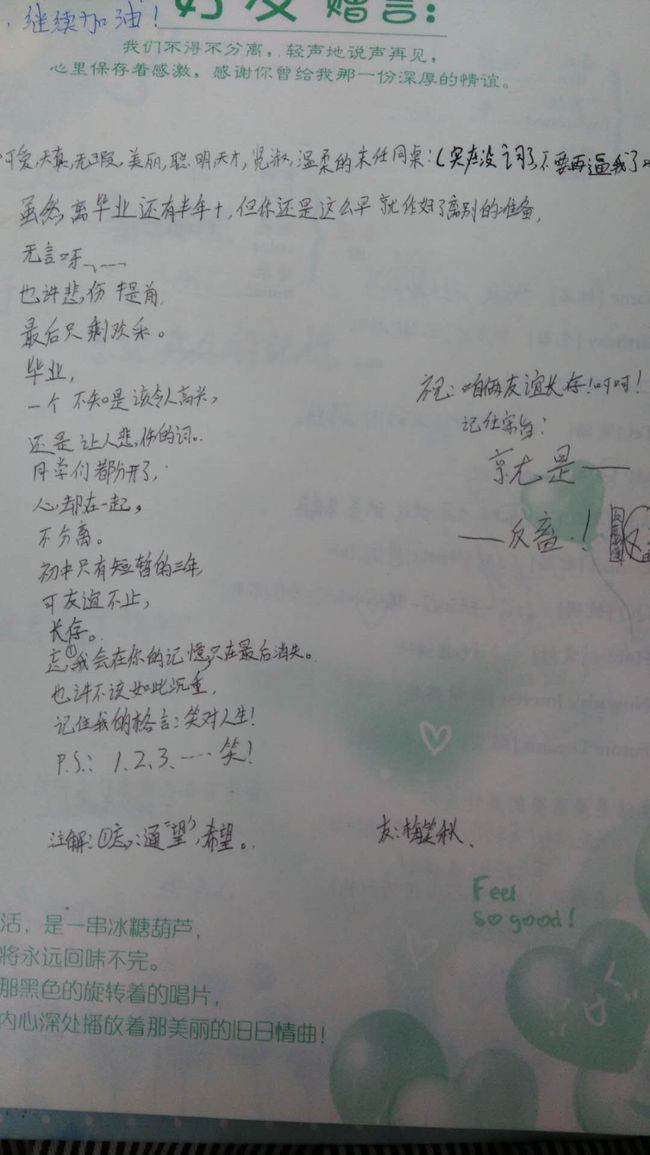 继续加油！
好友赠言：
我们不得不分离，轻声地说声再见，
心里保存着感激，感谢你曾给我那一份深厚的情谊。
可爱,天真,无瑕,美丽,聪明,天才,贤淑,温柔的末任同桌：(实在没词了,不要再逼我了
虽然离毕业还有半年+,但你还是这么早就作好了离别的准备,
无言呀、……
也许悲伤提前
最后只剩欢乐。
毕业,
一个不知是该令人高兴,
还是让人悲伤的词。
同学们都分开了,
心却在一起,
不分离。
初中只有短暂的三年,
可友谊不止,
长存。
忘①我会在你的记忆只在最后消失。
也许不该如此沉重,
记住我的格言：笑对人生!
P.S.: 1.2.3.……笑!
祝：咱俩友谊长存!呵呵!
记住宗旨：
就是——
——反畜!
注解：①忘：通"望",希望。
友：梅笑秋.
Feel
so good!
活，是一串冰糖葫芦，
将永远回味不完。
那黑色的旋转着的唱片，
内心深处播放着那美丽的旧日情曲！